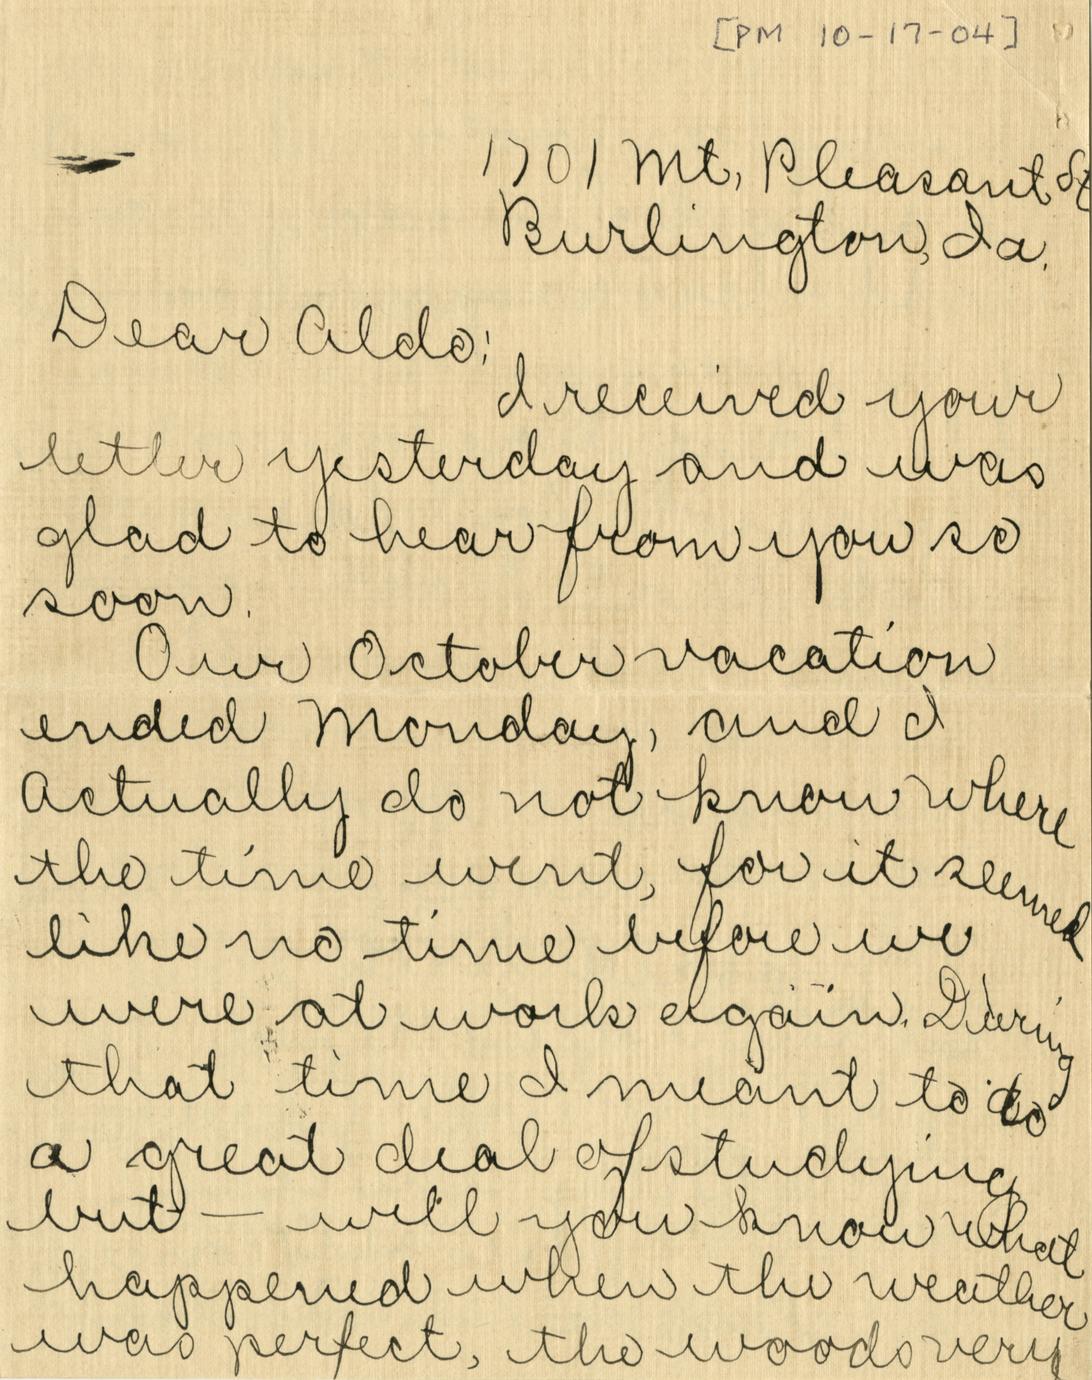 [PM 10-17-04]
1701 Mt, Pleasant St
Burlington, Ia.
Dear Aldo:
I received your
letter yesterday and was
glad to hear from you so
soon.
Our October vacation
ended Monday, and I
Actually do not know where
the time went, for it seemed
like no time before we
were at work again. During
that time I meant to do
a great deal of studying
but — well you know what
happened when the weather
was perfect, the woods very